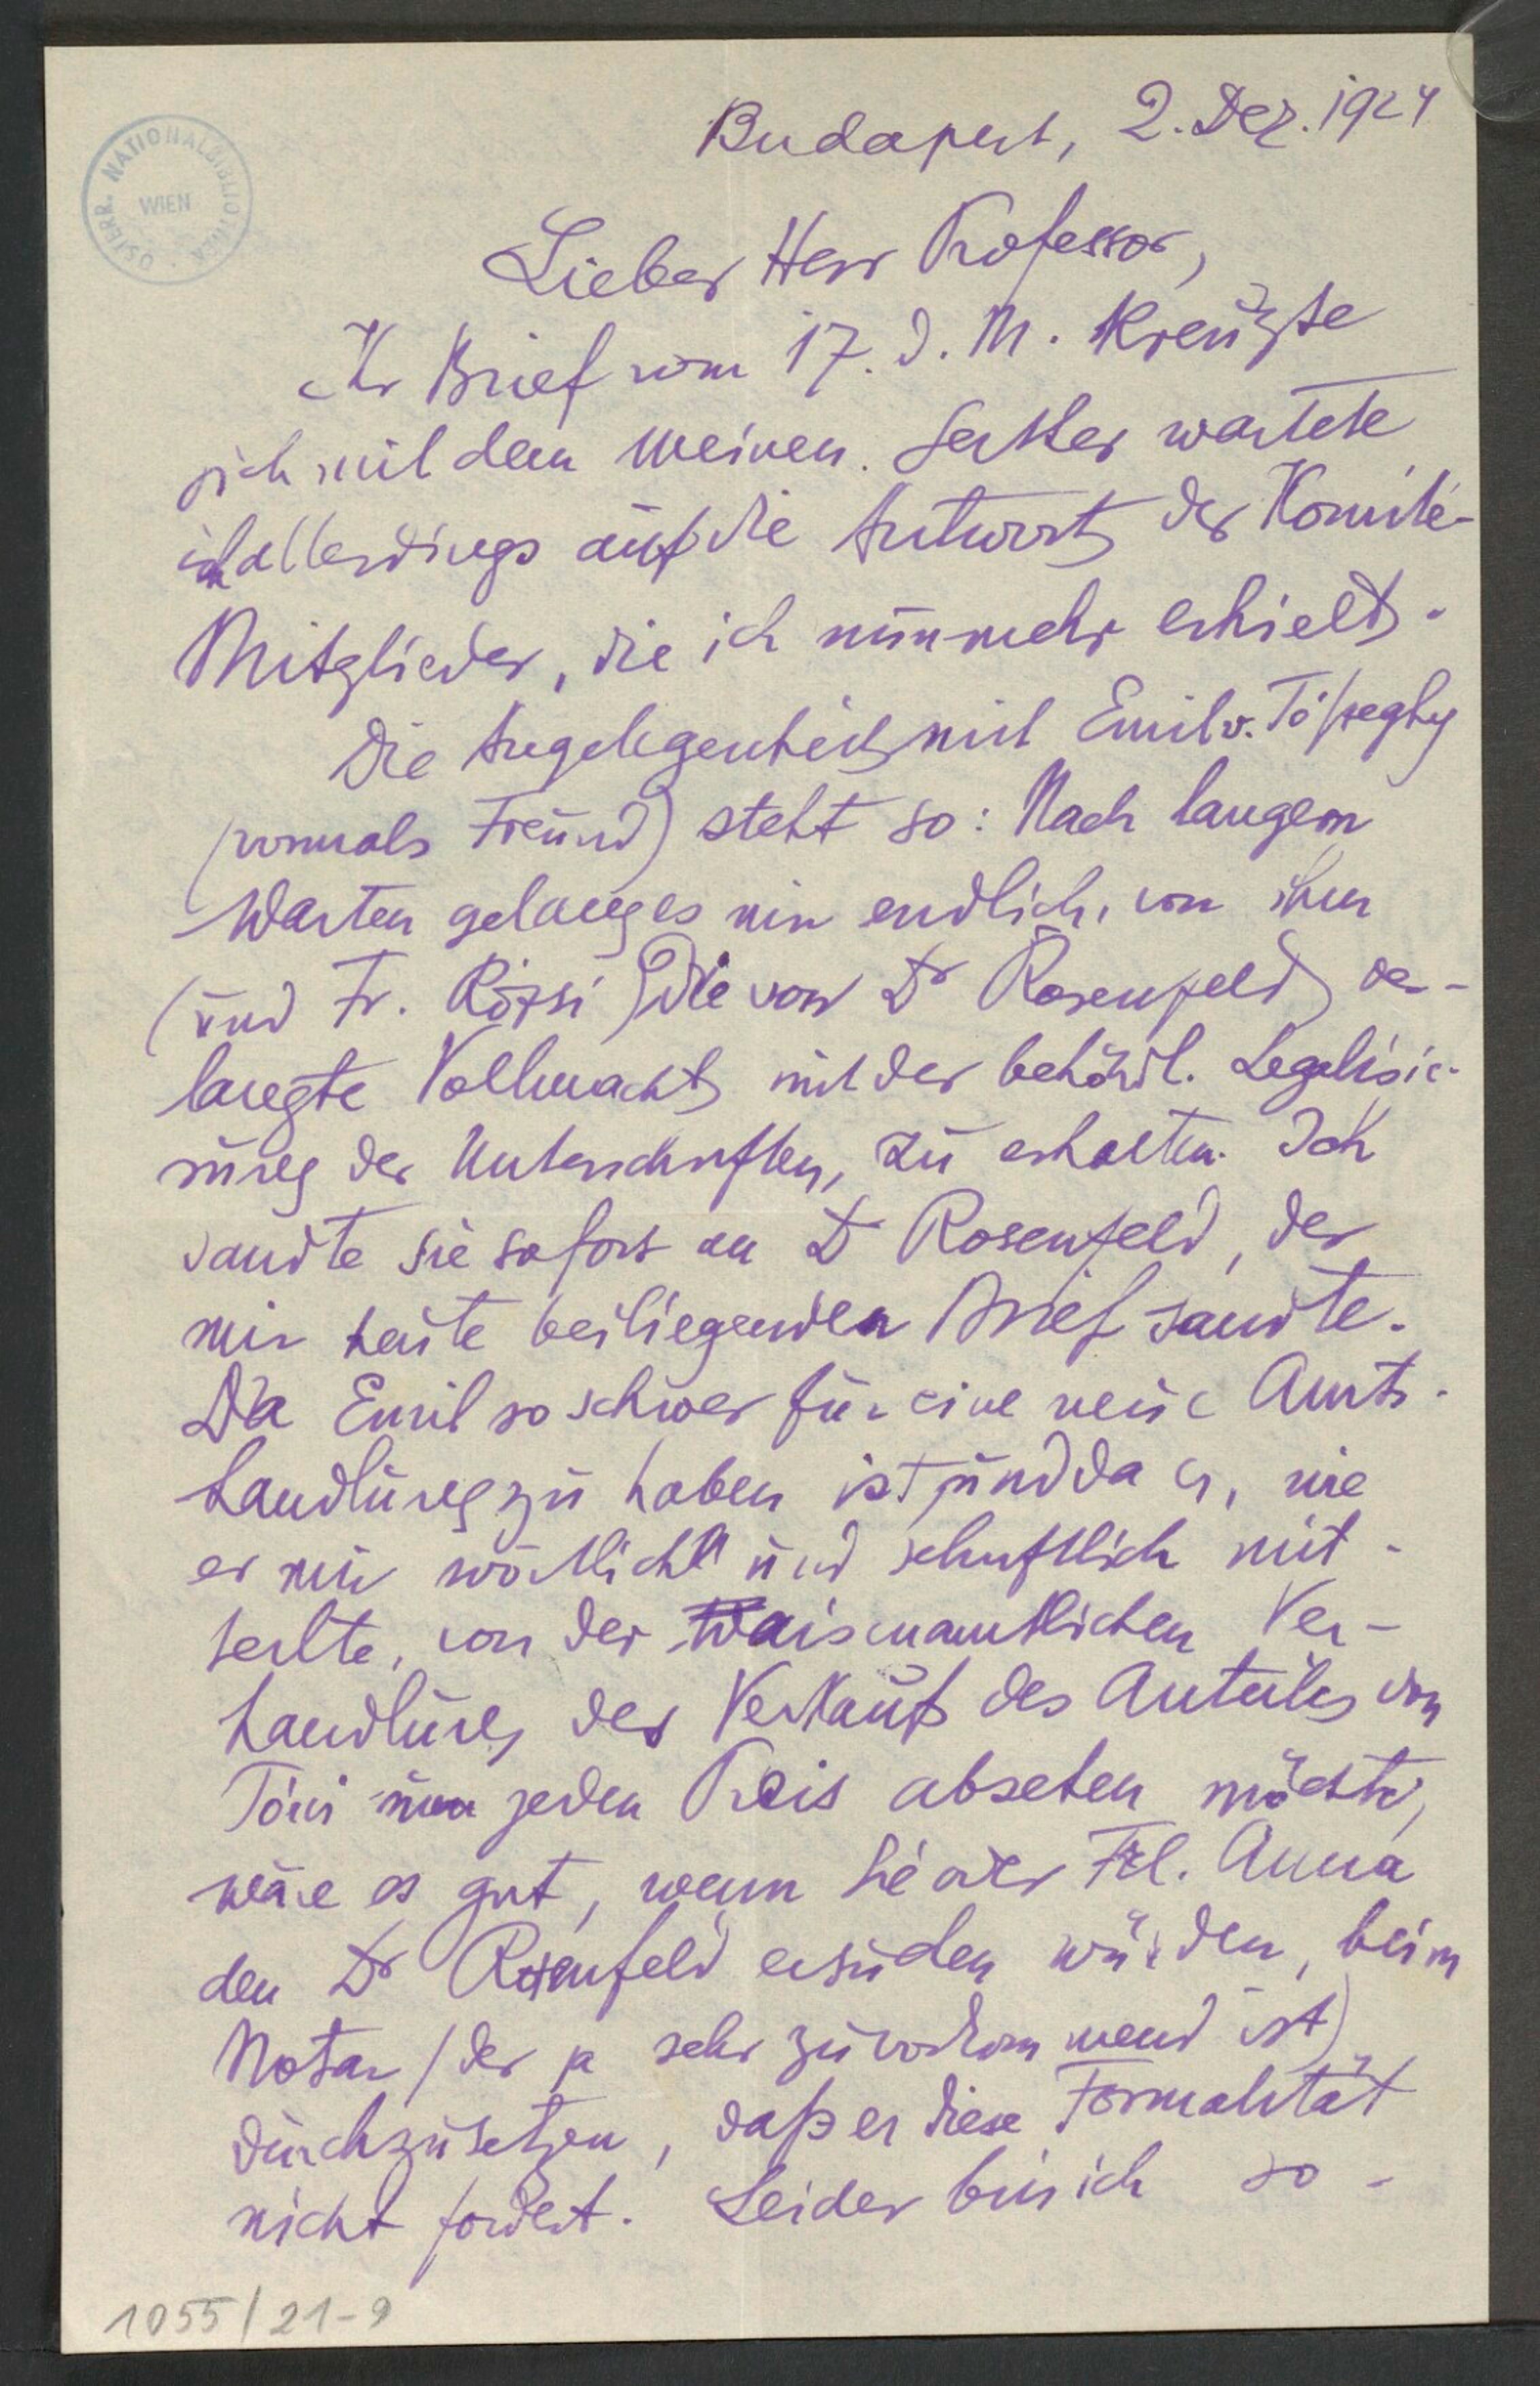 Budapest, 2. Dez. 1924
ÖSTERR. NATIONALBIBLIOTHEK
WIEN
Lieber Herr Professor,
Ihr Brief vom 17. d. M. kreuzte
sich mit dem meinen. Seither wartete
ich allerdings auf die Antwort der Komité-
Mitglieder, die ich nunmehr erhielt.
Die Angelegenheit mit Emil v. Tószeghy
(vormals Freund) steht so: Nach langem
Warten gelang es mir endlich, von ihm
(und Fr. Rózsi) die von Dr Rosenfeld ver-
langte Vollmacht mit der behördl. Legalisie-
rung der Unterschriften, zu erhalten. Ich
sandte sie sofort an Dr Rosenfeld, der
mir heute beiliegenden Brief sandte.
Da Emil so schwer für eine neue Amts-
handlung zu haben ist, und da er, wie
er mir wörtlich und schriftlich mit-
teilte, von der waisenamtlichen Ver-
handlung des Verkaufs des Anteiles von
Tóni um jeden Preis absehen möchte,
wäre es gut, wenn Sie oder Frl. Anna
den Dr Rosenfeld ersuchen würden, beim
Notar (der ja sehr zuvorkommend ist)
durchzusetzen, daß er diese Formalität
nicht fordert. Leider bin ich so-
1055/21-9